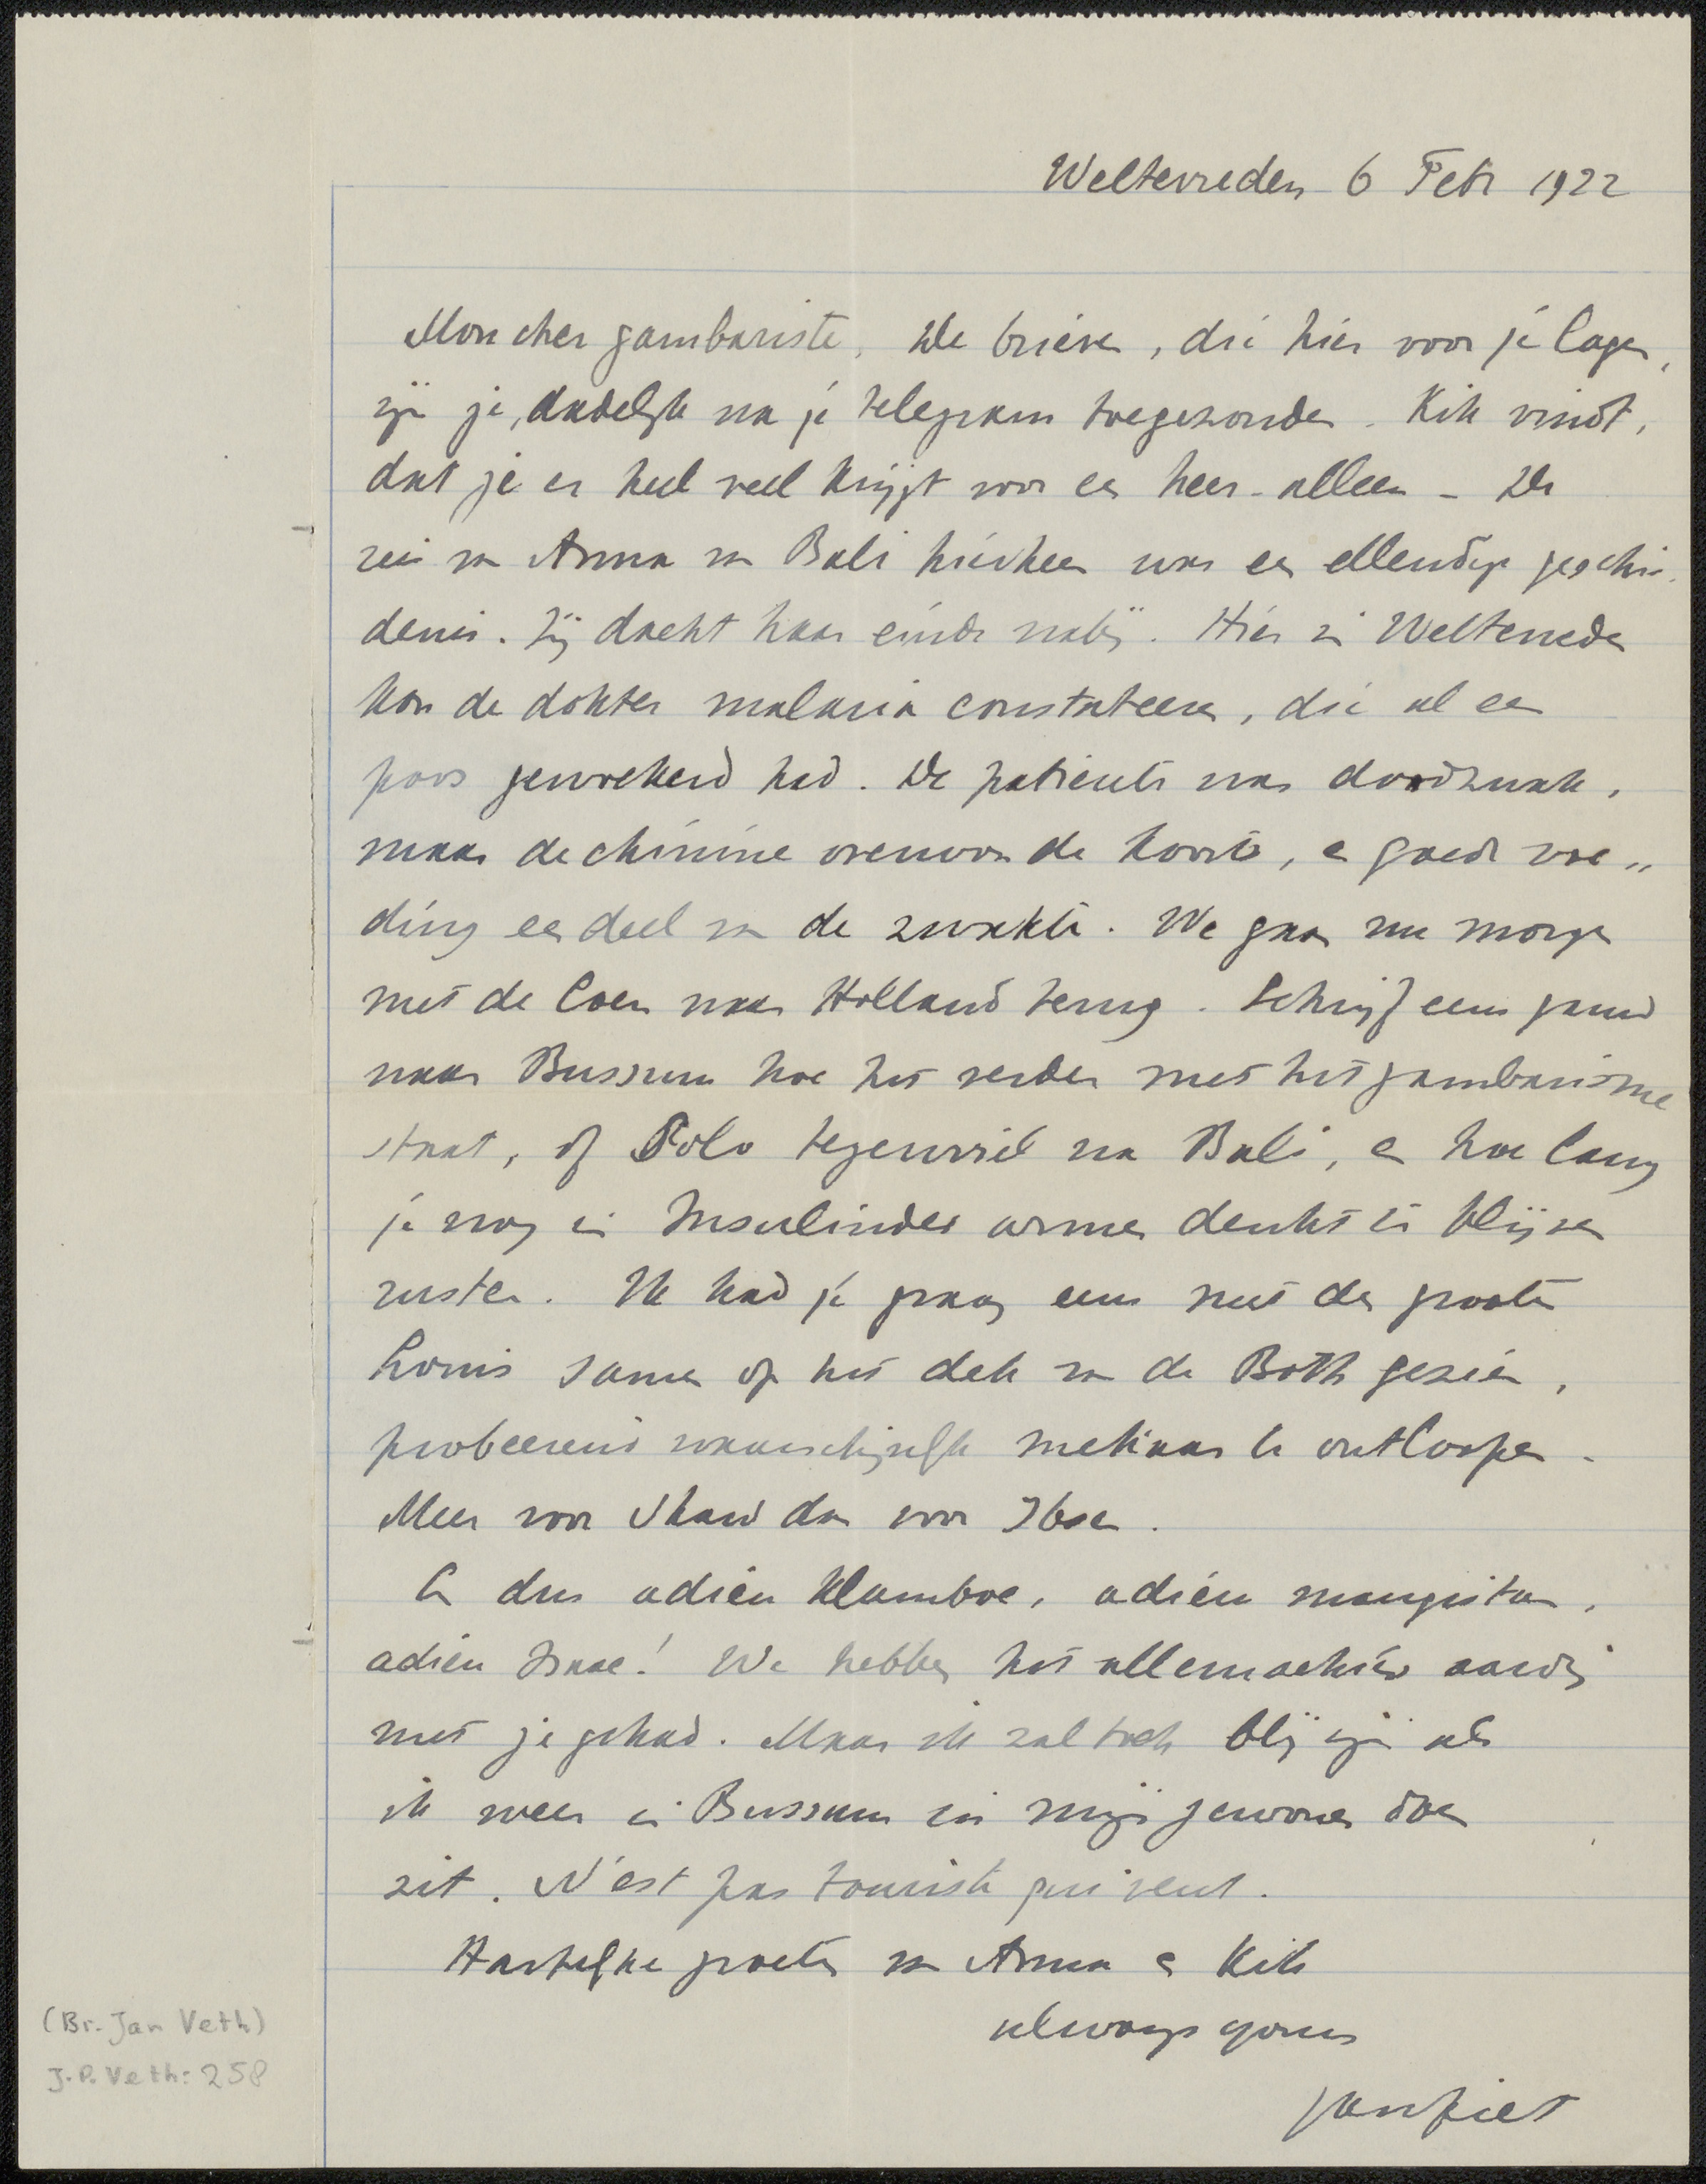 Weltevreden 6 Febr 1922
Mon cher gambariste, De brieven, die hier voor je lagen,
zijn je, dadelijk na je telegram toegezonden. Kik vindt,
dat je er heel veel krijgt voor een heer-alleen - De
reis van Anna van Bali hierheen was een ellendige geschie-
denis. Zij dacht haar einde nabij. Hier in Weltevreden
kon de dokter malaria constateeren, die al een
poos gewoekerd had. De patiente was doodzwak,
maar de chinine overwon de koorts, en goede voe„
ding een deel van de zwakte. We gaan nu morgen
met de Coen naar Holland terug. Schrijf eens gauw
naar Bussum hoe het verder met het gambarisme
staat, of Solo tegenviel na Bali, en hoe lang
je nog in Insulindes armen denkt te blijven
rusten. Ik had je graag eens met den grooten
Louis samen op het dek van de Both gezien,
probeerend waarschijnlijk mekaar te ontloopen.
Meer voor Shaw dan voor Ibsen.
En dus adieu klamboe, adieu mangistan,
adieu Isaac! We hebben het allemachtig aardig
met je gehad. Maar ik zal toch blij zijn als
ik weer in Bussum in mijn gewonen doen
zit. N'est pas touriste qui veut.
Hartelijke groeten van Anna en Kik
always yours
Janpiet
(Br. Jan Veth)
J.P. Veth: 258